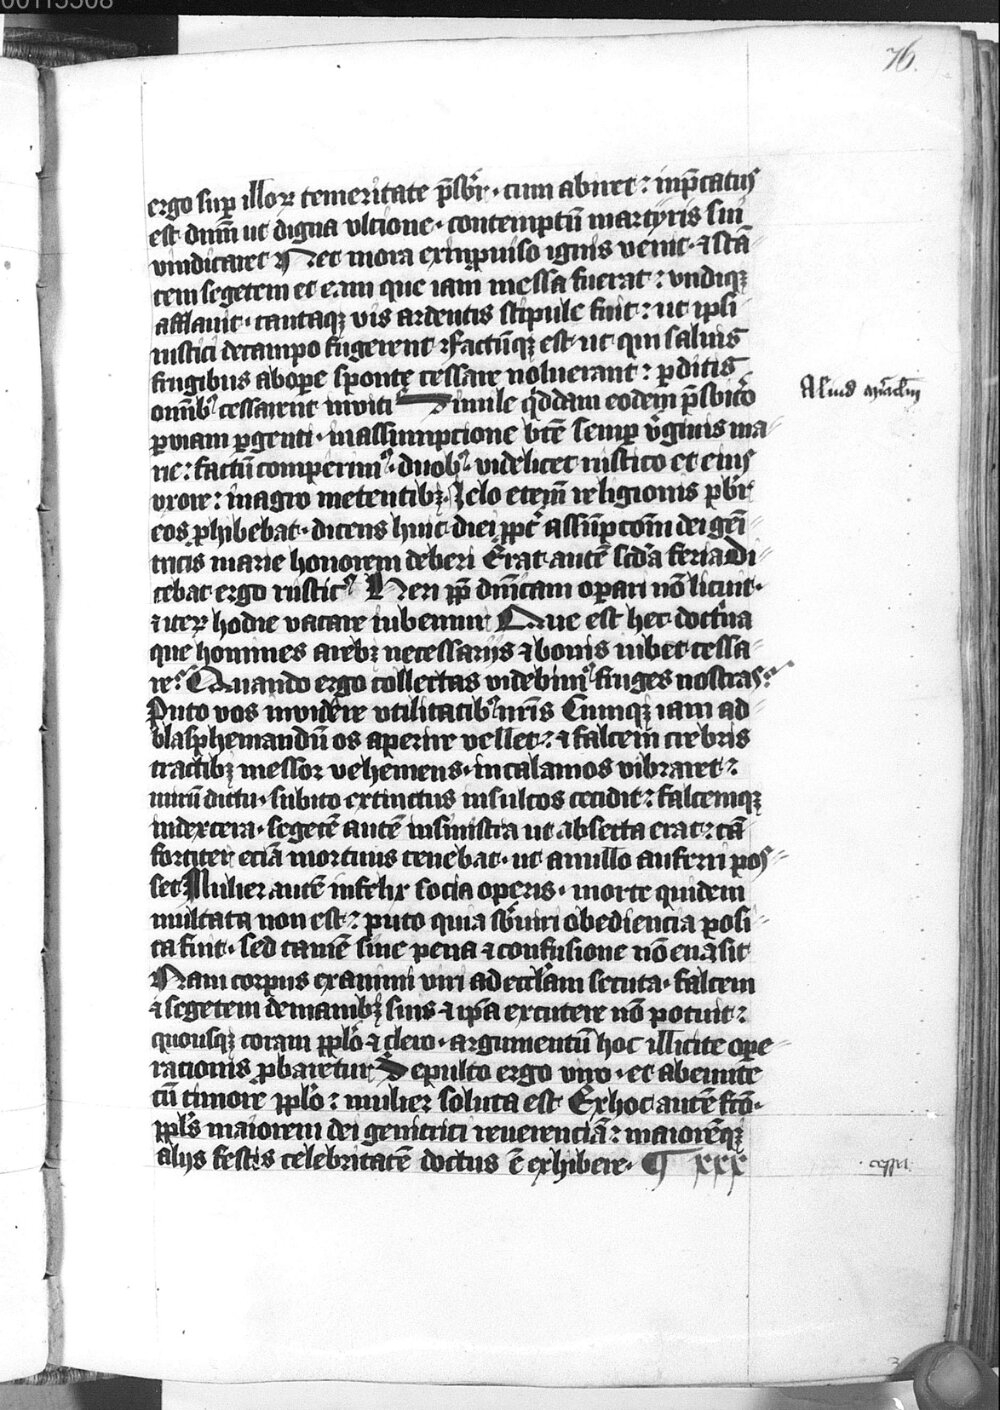 00115508
76.
ergo sup illoꝝ temeritate p̄sbr̄i · cum abiret : inp̄catus
est dn̄m ut digna vltione · contemptū martyris sui
vindicaret Nec mora exinꝓuiso ignis venit · ⁊ stā
tem segetem et eam que iam messa fuerat : vndiqꝫ
afflauit · tantaqꝫ vis ardentis stipule fuit : ut ipsi
rustici decampo fugerent ⁊ Factūqꝫ est ut qui saluis
frugibus abope sponte cessare noluerant : ꝑditis
omīb⁹ cessarent inuiti Simile q̇ddam eodem p̄sbit̄o
ꝑuiam ꝑgenti · inassumptione btē semꝑ v̄ginis ma
rie : factūm comperim⁹ · duob⁹ videlicet rustico et eius
vxore : inagro metentibꝫ · Zelo eten̄i religionis p̄br̄
eos ꝓhibebat · dicens huic diei ꝓpt̄ assūptōm̄ dei gēi
tricis marie honorem deberi Erat autē scd̄a feria Di
cebat ergo rustic⁹ Heri ꝓp̄ dn̄icam oꝑari nō licuit ·
⁊ iteꝝ hodie vacare iubemur Que est hec doct̄na
que homines arebꝫ necessarijs ⁊ bonis iubet cessa
re : Quando ergo collectas videbim⁹ fruges nostras :
Puto vos inuidēre vtilitatib⁹ nr̄is Cumqꝫ iam ad
blasphemandū os aperire vellet : ⁊ falcem crebris
tractibꝫ messor vehemens · incalamos vibraret :
mirū dictu · subito extinctus insultos cecidit : falcemqꝫ
indextera · segetē autē insinistra ut absecta erat : tā
fortiter eciā mortuus tenebat · ut anullo auferri pos
set Mulier autē infelix socia operis · morte quidem
multata non est : puto quia sb̄viri obediencia posi
ta fuit · sed tamē sine pena ⁊ confusione nō euasit
Nam corpus exanimi viri ad eccl̄am secuta · falcem
⁊ segetem demanibꝫ suis ⁊ ip̄a excutere nō potuit :
quousqꝫ coram ꝓplō ⁊ clero · argumentū hoc illicite ope
racionis ꝓbaretur Sepulto ergo viro · et abeunte
cū timore ꝓplō : mulier soluta est Exhoc autē fcō ·
ꝓpl̄s maiorem dei genitrici reuerenciā : maiorēqꝫ
alijs festis celebritatē doctus ē exhibere · ¶ xxx
Aliud